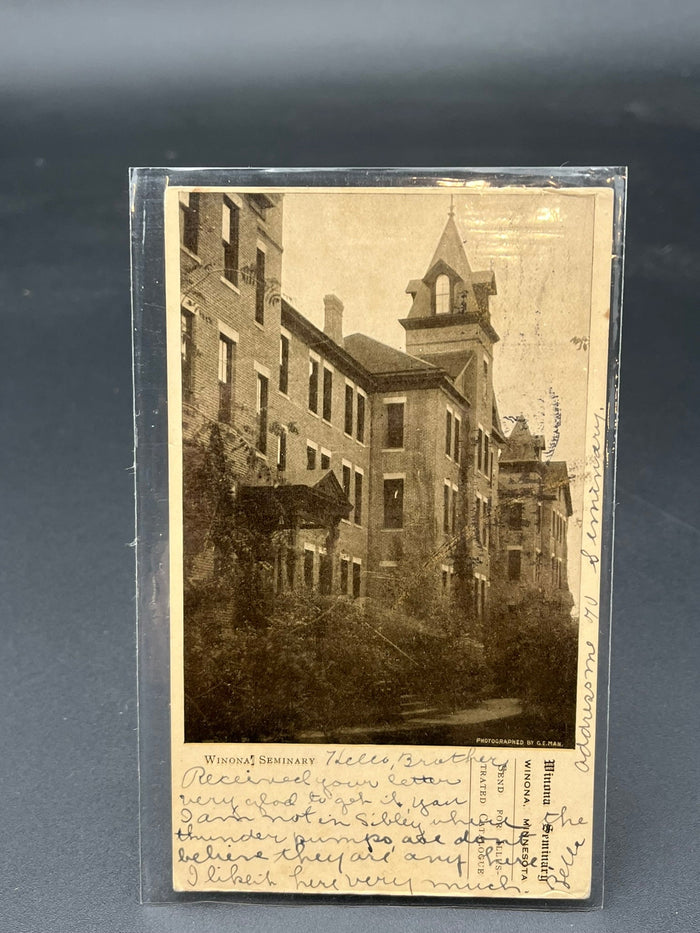 PHOTOGRAPHED BY G.E. MAN.
WINONA SEMINARY Hello, Brother,
Received your letter
very glad to get it you
I am not in Sibley where the
thunder pumps are dont
believe they are any here.
I like it here very much.
Bella
SEND FOR ILLUS-
TRATED CATALOGUE
Winona Seminary
WINONA, MINNESOTA
addresome to Seminary.